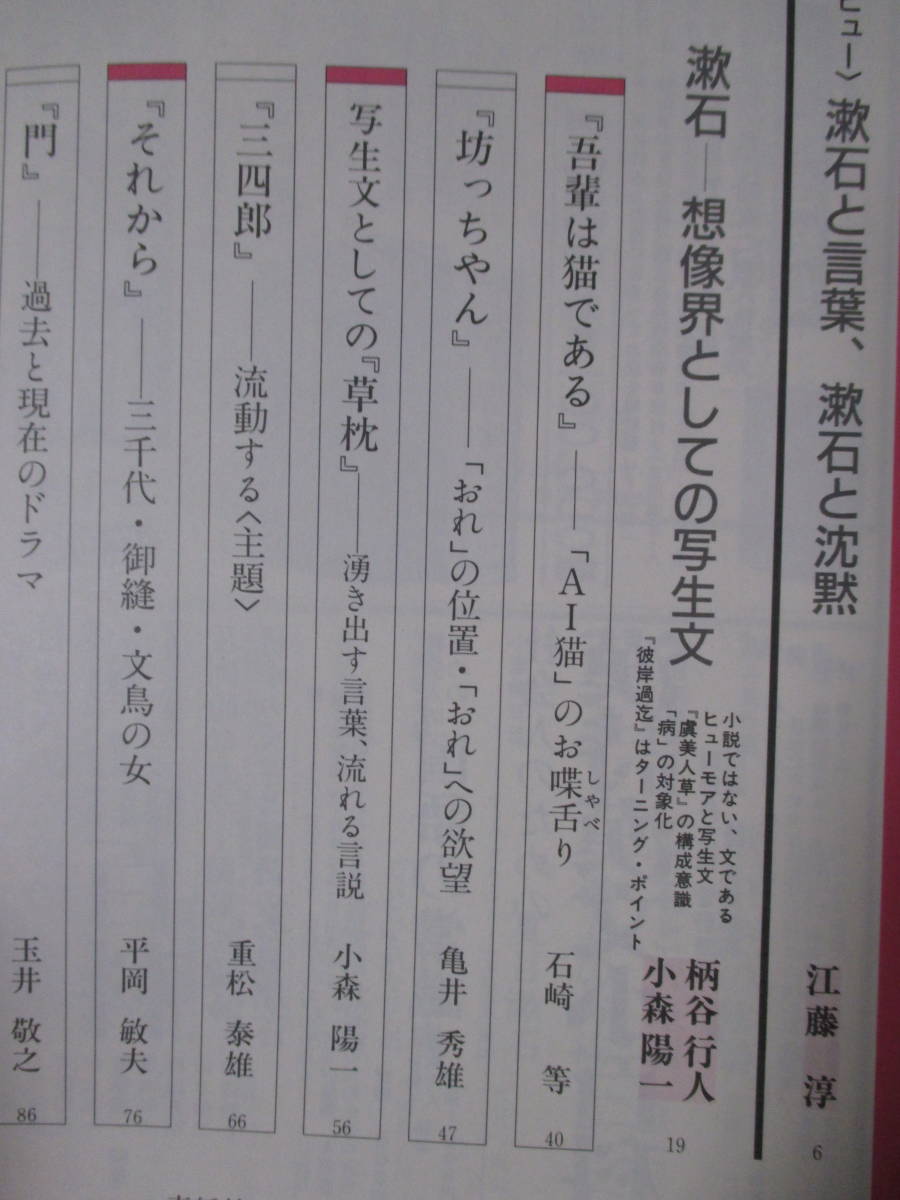 ュー〉漱石と言葉、漱石と沈黙
江藤 淳
6
漱石――想像界としての写生文
小説ではない、文である
ヒューモアと写生文
『虞美人草』の構成意識
「病」の対象化
『彼岸過迄』はターニング・ポイント
柄谷行人
小森陽一
19
『吾輩は猫である』――「AI猫」のお喋舌り
しゃべ
石崎 等
40
『坊っちやん』――「おれ」の位置・「おれ」への欲望
亀井 秀雄
47
写生文としての『草枕』――湧き出す言葉、流れる言説
小森 陽一
56
『三四郎』――流動する〈主題〉
重松 泰雄
66
『それから』――三千代・御縫・文鳥の女
平岡 敏夫
76
『門』――過去と現在のドラマ
玉井 敬之
86